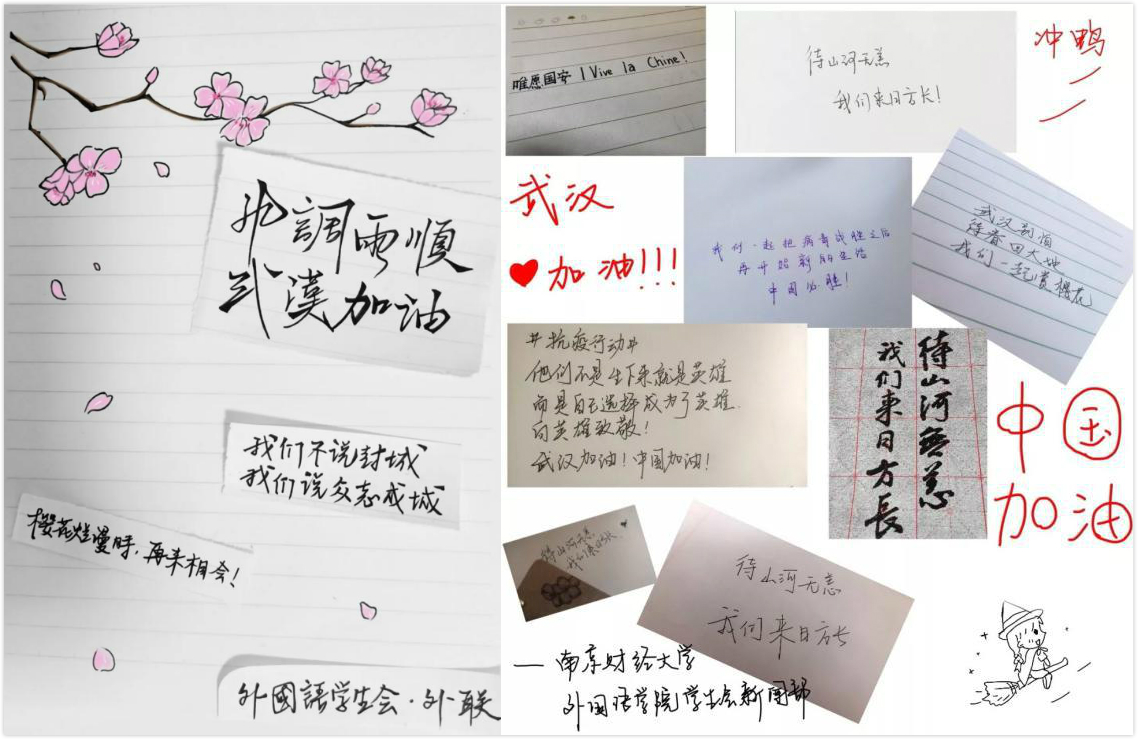 风調雨順
武漢加油
我们不说封城
我们说众志成城
樱花烂漫时，再来相会！
外國語学生会·外联
唯愿国安 | Vive la Chine!
待山河无恙
我们来日方长！
冲鸭
武汉
加油!!!
我们一起把病毒战胜之后
再开始新的生活
中国必胜！
武汉别怕
待春回大地
我们一起赏樱花
#抗疫行动#
他们不是生下来就是英雄
而是自己选择成为了英雄.
向英雄致敬！
武汉加油！中国加油！
待山河無恙
我们来日方長
中国
加油
待山河无恙，
我们来日方长
待山河无恙
我们来日方长
— 南京财经大学
外国语学院学生会新闻部